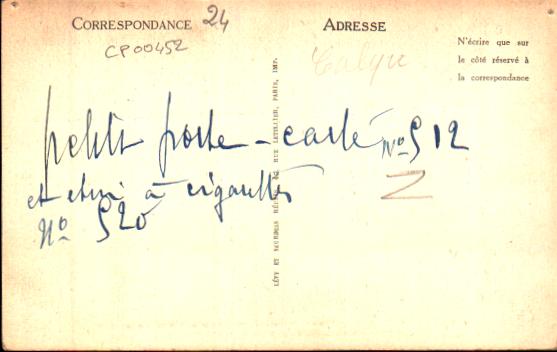 CORRESPONDANCE
24
CP00452
ADRESSE
N'écrire que sur
le côté réservé à
la correspondance
petit porte-carte N° 512
et etui à cigarettes
N° 520
LÉVY ET NEURDEIN RÉUNIS, RUE LETELLIER, PARIS, IMP.